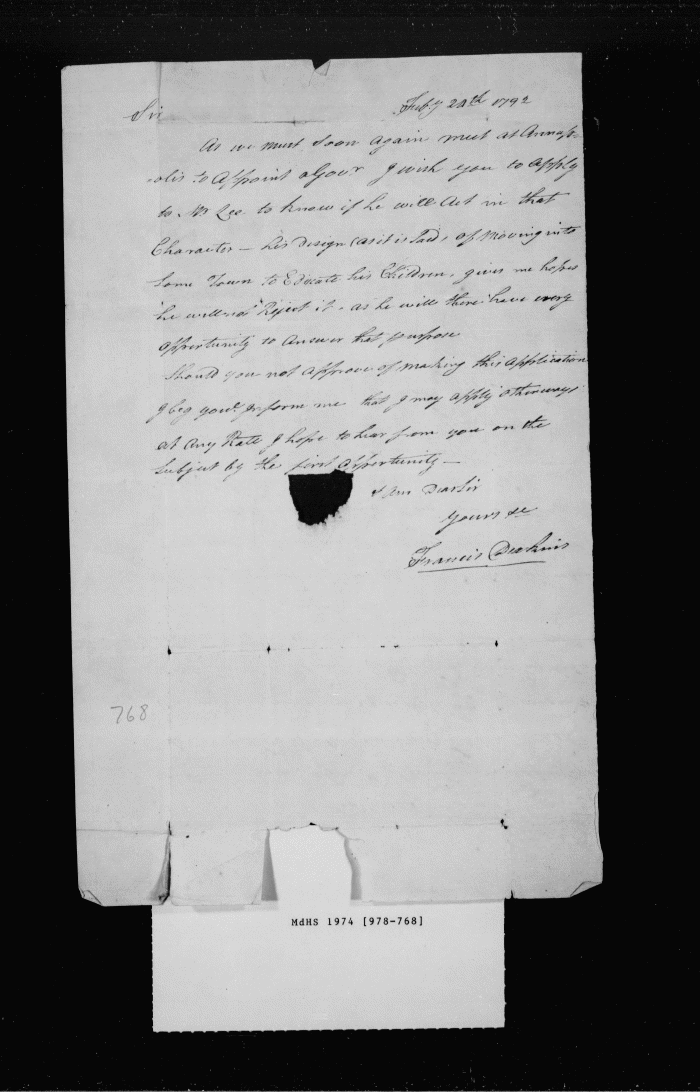 Sir Feby 24th 1792
As we must soon again meet at Annap-
-olis to Appoint a Govr I wish you to apply
to Mr Lee to know if he will Act in that
Character — his design (as it is Said) of Moving into
Some Town to Educate his Children, gives me hopes
he will not Reject it - as he will there have every
opportunity to answer that purpose
Should you not approve of making this application
I beg youl Inform me that I may apply otherways
at any Rate I hope to hear from you on the
Subject by the first Opportunity —
I am Dear Sir
Yours &c
Francis Deakins
768
MdHS 1974 [978-768]